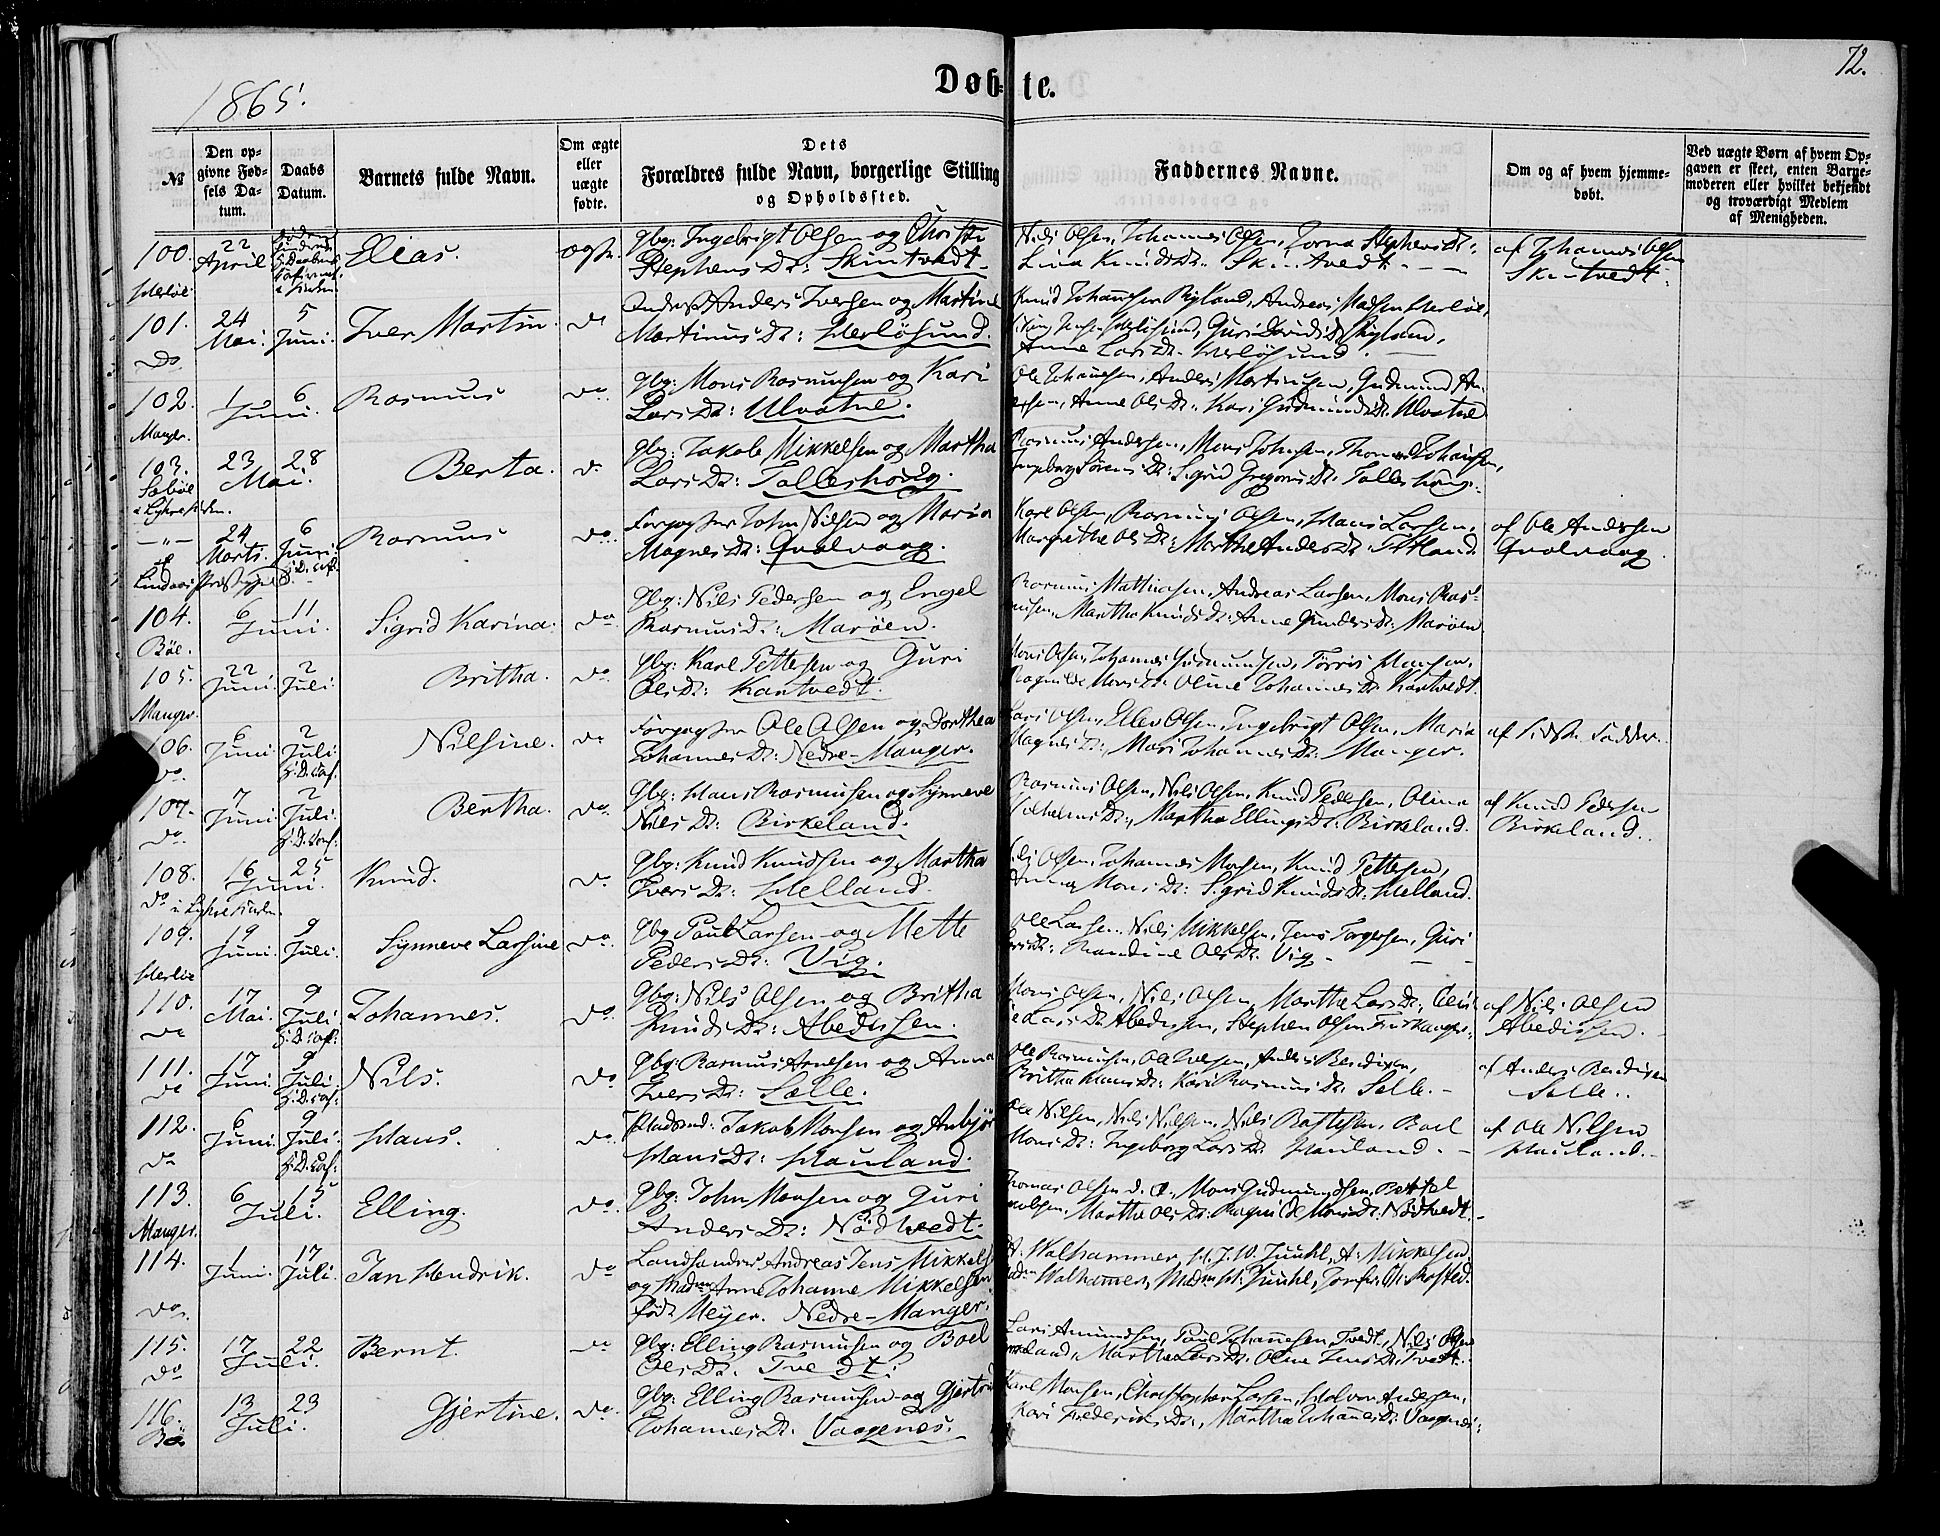 72.
1865.
Døbte.
№
Den opgivne Fødsels Datum.
Daabs Datum.
Barnets fulde Navn.
Om ægte eller uægte fødte.
Dets Forældres fulde Navn, borgerlige Stilling og Opholdssted.
Faddernes Navne.
Om og af hvem hjemmedøbt.
Ved uægte Børn af hvem Opgaven er skeet, enten Barnemoderen eller hvilket bekjendt og troværdigt Medlem af Menigheden.
100. 22 April Elias. ægte. Gbg: Ingebrigt Olsen og
Stephens Dt: Skintvedt
Nils Olsen, Johannes Olsen, Stephens Dt:
Knuds Dt.
af Johannes Olsen
101. 24 Mai. 5 Juni. Iver Martin. do Anders Iversen og Martine
Martinus Dt: Herløsund.
Knud Johannesen Andreas Madsen Herløe,
Anne Lars Dt. Herløsund.
do
102. 1 6 Juni. Rasmus do. Gbg: Mons Rasmussen og Kari
Lars Dt: Ulvatne.
Ole Johannesen, Anders Martinsen, Gudmund An-
Anne Ols Dt. Kari Gudmunds Dt. Ulvatne
Manger.
103. 23 28 Mai. Berta. do Gbg: Jakob Mikkelsen og Martha
Lars Dt: Tolleshoug.
Rasmus Andersen, Mons Johnsen, Thomas Johannesen,
Ingeborg Sørens Dt: Sigrid Gregorius Dt. Tolleshoug.
Sæbøe
i Lygrekirken.
24 Marts. 6 Juni Rasmus do. Forpagter John Nilsen og Maria
Magnes Dt: Qvalvaag.
Karl Olsen, Rasmus Olsen, Hans Larsen,
Margrethe Ols Dt: Marthe Anders Dt. Fetland
af Ole Andersen
Qvalvaag.
104. 6 11 Juni. Sigrid Karina. do Gbg: Nils Pedersen og Engel
Rasmus D.: Marøen.
Rasmus Mathiasen, Andreas Larsen, Mons Ras-
musen, Martha Knuds Dt: Anne Gunders Dt: Marøen.
Bøe.
105. 22 Juni 2 Juli Britha. do Gbg: Karl Pettersen og Guri
Ols Dt: Kartvedt.
Mons Olsen, Johannes Gudmunsen, Hansen,
Ragnilde Mons Dt: Oline Johannes Dt. Kartvedt.
Manger.
106. 6 Juni 2 Juli Nilsine. do Forpagter Ole Olsen og Dorthea
Johannes Dt: Nedre-Manger.
Lars Olsen, Ellev Olsen, Ingebrigt Olsen, Maria
Magnes Dt., Mari Johannes Dt. Manger.
af Sidste Fadder.
do.
107. 7 Juni 2 Juli Bertha. do. Gbg: Hans Rasmusen og Synneve
Nils Dt: Birkeland.
Rasmus Olsen, Nils Olsen, Knud Pedersen, Olina
Martha Ellings Dt: Birkeland.
af Knud Pedersen
Birkeland.
do.
108. 16 25 Juni. Knud. do Gbg: Knud Knudsen og Martha
Ivers Dt: Helland.
Nils Olsen, Johannes Monsen, Knud Pettersen,
Anna Mons Dt: Sigrid Knuds Dt: Helland.
do i Lygrekirken.
109. 19 Juni. 9 Juli. Synneve Larsine do. Gbg Paul Larsen og Mette
Peders Dt: Vig.
Ole Larsen. Nils Mikkelsen, Jens Torgersen, Guri
Randine Ols Dt. Vig
Herløe
110. 17 Mai 9 Juli Johannes. do Gbg: Nils Olsen og Britha
Knuds Dt: Abedissen.
Mons Olsen, Nils Olsen, Marthe Lars Dt.,
Lars Dt. Abedissen, Stephen Olsen
af Nils Olsen
Abedissen.
do
111. 17 Juni 9 Juli Nils. do Gbg: Rasmus Arnesen og Anna
Ivers Dt: Sælle.
Ole Rasmusen, Ole Anders Bendixen,
Britha Hans Dt: Kari Rasmus Dt. Selle.
af Anders Bendixen
Selle.
do
112. 6 Juni 9 Juli Hans. do. Pladsmd: Jakob Monsen og Anbjør
Hans Dt: Hauland.
Ole Nilsen, Nils Nilsen, Nils Boel
Mons Dt: Ingeborg Lars Dt. Hauland.
af Ole Nilsen
Hauland.
do
113. 6 15 Juli. Elling. do Gbg: John Monsen og Guri
Anders Dt: Nødtvedt.
Thomas Olsen Mons Gudmundsen, Bertel
Martha Ols Dt. Ragnilde Mons Dt: Nødtvedt.
Manger.
114. 1 Juni. 17 Juli. Jan Hendrik. do Landhandler Andreas Jens Mikkelsen
og Anne Johanne Mikkelsen
født Meyer. Nedre-Manger.
Walhammer, H. J. W. Juuhl, A. Mikkelsen,
Walhammer, Juuhl,
do.
115. 17 22 Juli. Bernt. do Gbg: Elling Rasmusen og Boel
Ols Dt. Tvedt.
Lars Amundsen, Poul Johannesen Tvedt, Nils Olsen
Marthe Lars Dt. Oline Jens Dt. Tvedt.
do
116. 13 23 Juli. Gjertine. do. Gbg: Elling Rasmusen og Gjertrud
Johannes Dt. Vaagenes.
Karl Monsen, Christopher Larsen, Halvor Andersen,
Kari Frederiks Dt., Martha Johannes Dt. Vaagenes.
Bøe